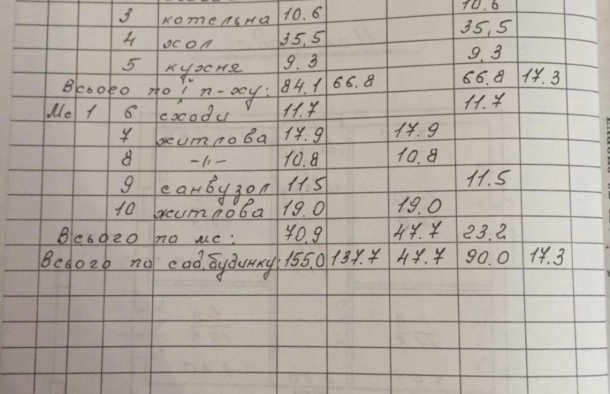 3 котельна 10.6 10.6
4 хол 35,5 35,5
5 кухня 9.3 9.3
Всього по 1й п-ху: 84.1 66.8 66.8 17.3
Мс 1 6 сходи 11.7 11.7
7 житлова 17.9 17.9
8 -//- 10.8 10.8
9 санвузол 11.5 11.5
10 житлова 19.0 19.0
Всього по мс: 70,9 47.7 23.2
Всього по сад.будинку: 155.0 137.7 47.7 90.0 17.3